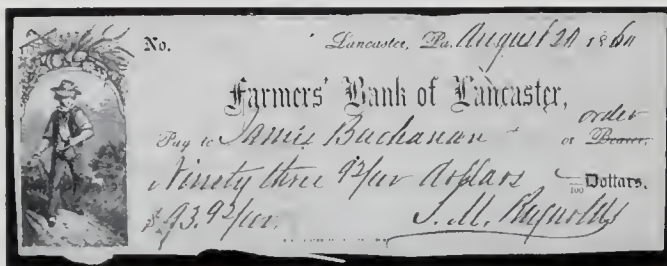 No. Lancaster, Pa. August 20 1860
Farmers' Bank of Lancaster,
order
Pay to James Buchanan or Bearer.
Ninety three 92/100 dollars /100 Dollars.
$93.92/100. S. M. Reynolds